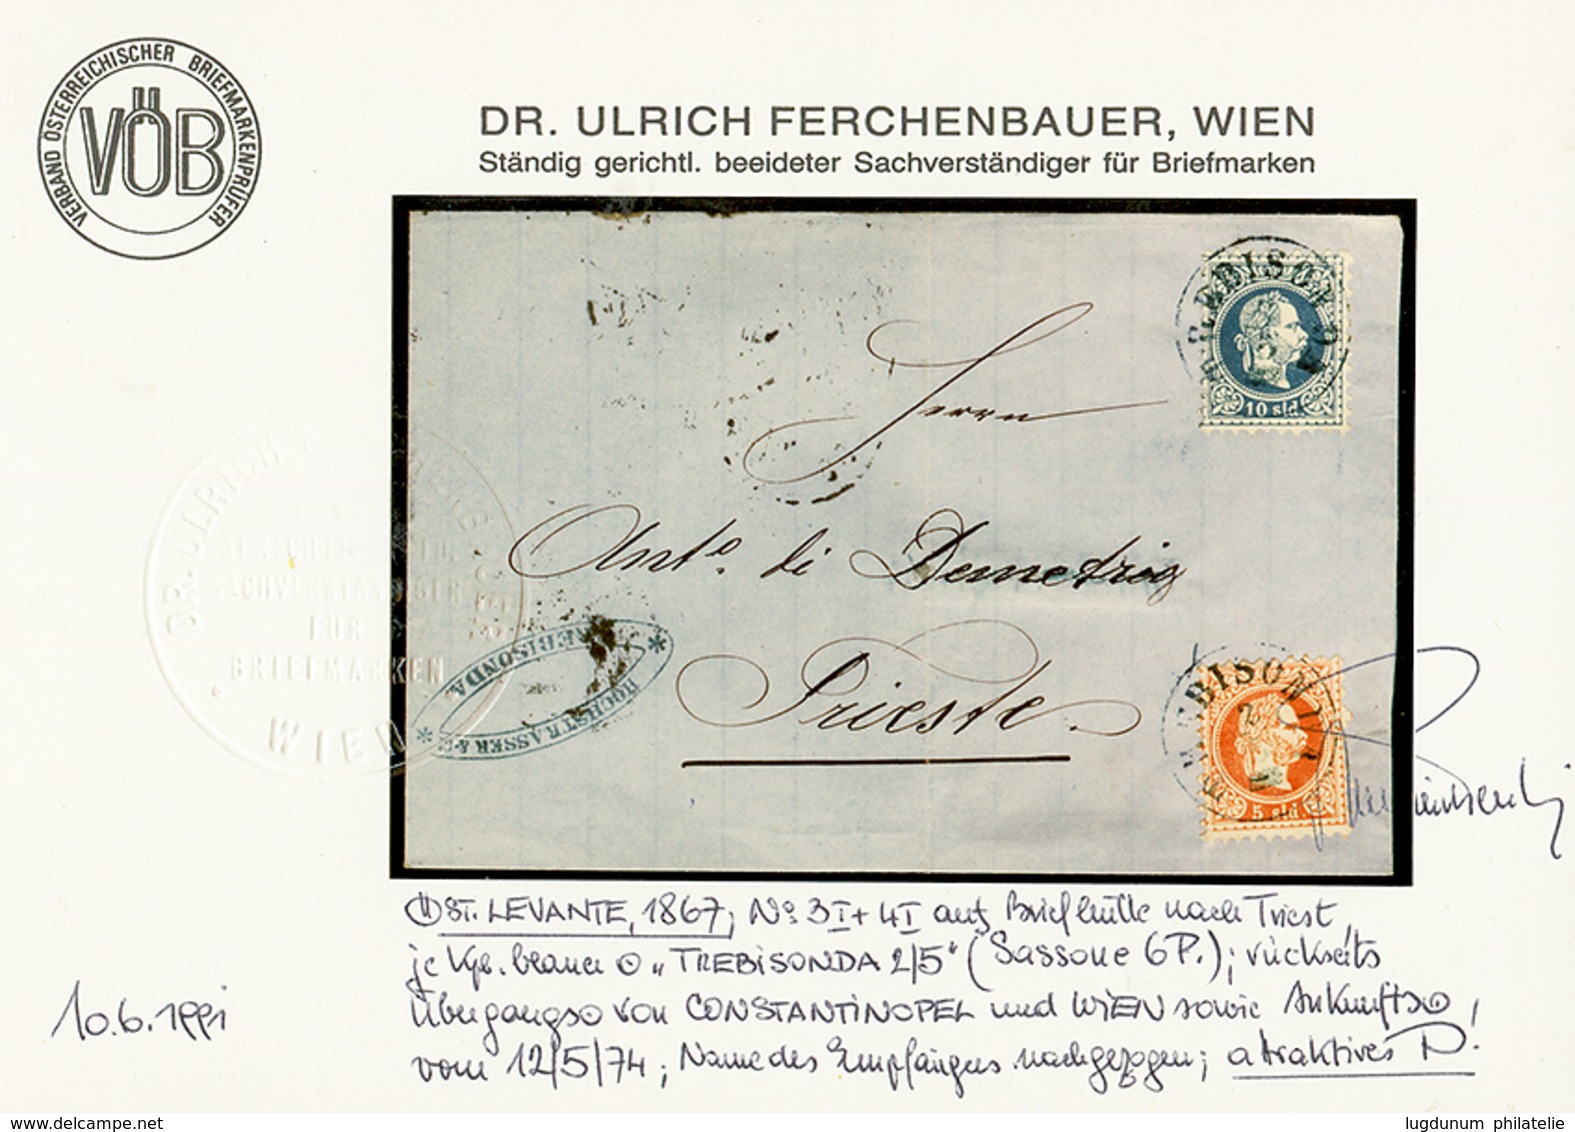 VERBAND ÖSTERREICHISCHER BRIEFMARKENPRÜFER
VÖB
DR. ULRICH FERCHENBAUER, WIEN
Ständig gerichtl. beeideter Sachverständiger für Briefmarken
TREBISONDA
10 sld.
Herrn
Ant.º di Demetrio
Trieste
HOCHSTRASSER & Cº
* TREBISONDA *
TREBISONDA
5 sld.
DR. ULRICH
SACHVERSTÄNDIGER
FÜR
BRIEFMARKEN
WIEN
ÖST. LEVANTE, 1867, Nº 3I + 4I auf Briefhülle nach Triest,
je kpl. blauer ʘ „TREBISONDA 2/5" (Sassone 6P.); rückseits
Übergangsʘ von CONSTANTINOPEL und WIEN sowie Ankunftsʘ,
vom 12/5/74; Name des Empfängers nachgezogen; attraktives
10.6.1991
delcampe.net
lugdunum philatelie